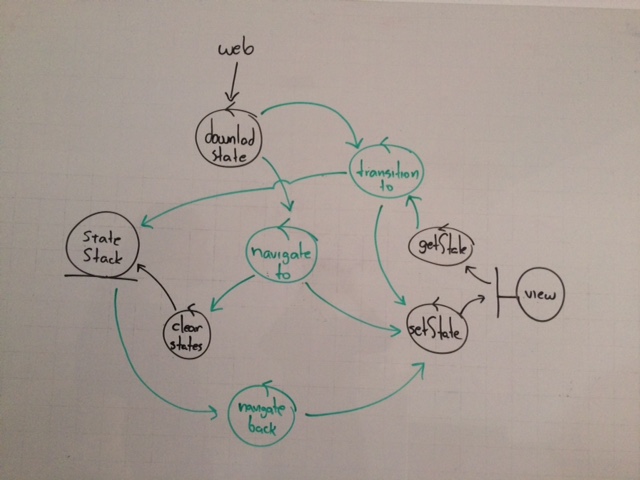 web
downlod
state
transition
to
state
stack
navigate
to
getState
view
clear
states
setState
navigate
back